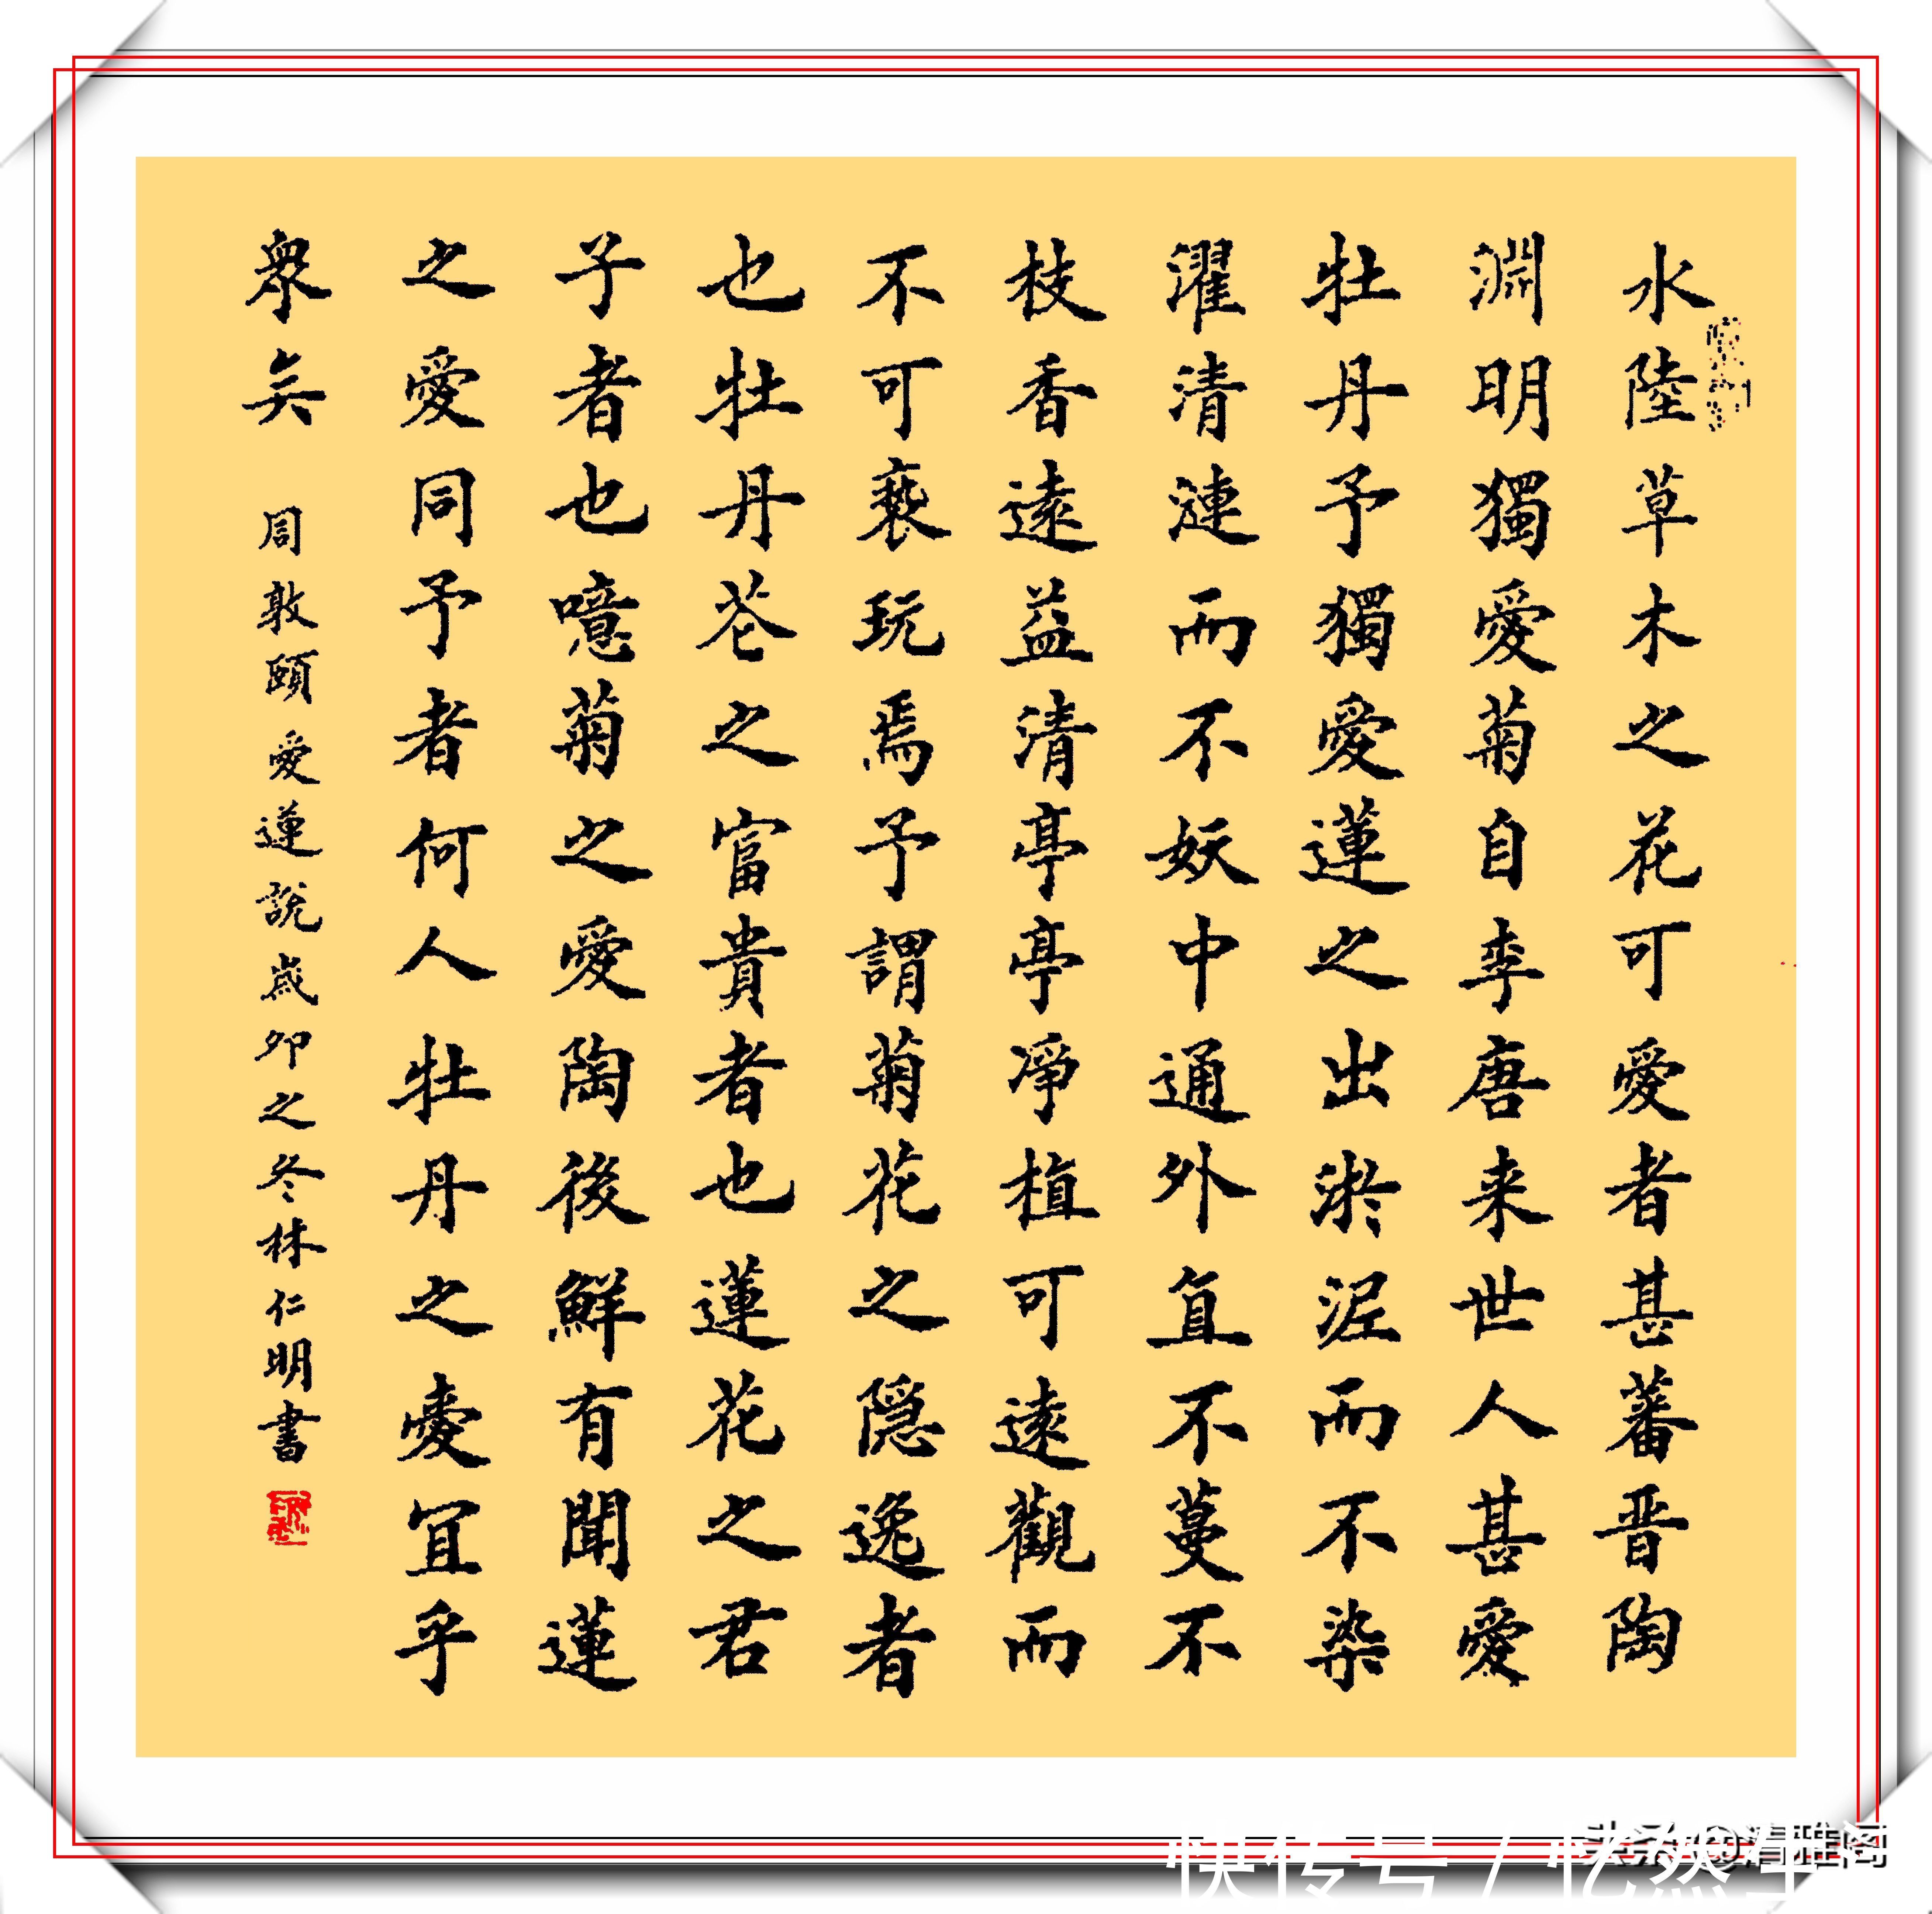 水陸草木之花可愛者甚蕃晋陶
淵明獨愛菊自李唐来世人甚愛
牡丹予獨愛蓮之出淤泥而不染
濯清漣而不妖中通外直不蔓不
枝香遠益清亭亭凈植可遠觀而
不可褻玩焉予謂菊花之隠逸者
也牡丹花之富貴者也蓮花之君
子者也噫菊之愛陶後鮮有聞蓮
之愛同予者何人牡丹之愛宜乎
衆矣 周敦頤愛蓮說歲卯之冬林仁明書
快传号 / 忆然生